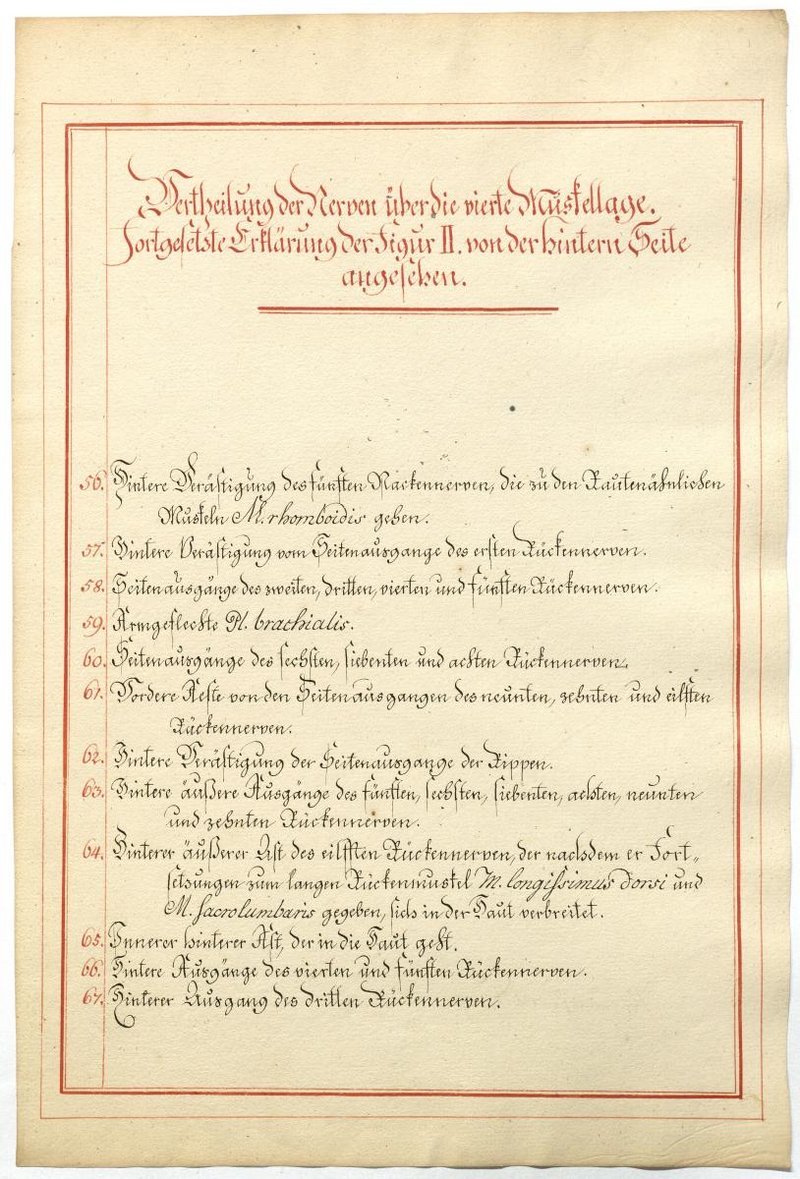 Vertheilung der Nerven über die vierte Muskellage.
Fortgesetzte Erklärung der Figur II. von der hintern Seite
angesehen.
56. Hintere Verästigung des fünften Nackennerven, die zu den Rautenähnlichen
Muskeln M. rhomboidis gehen.
57. Hintere Verästigung vom Seitenausgange des ersten Rückennerven.
58. Seitenausgänge des zweiten, dritten, vierten und fünften Rückennerven.
59. Armgeflechte Pl. brachialis.
60. Seitenausgänge des sechsten, siebenten und achten Rückennerven.
61. Vordere Aeste von den Seitenausgangen des neunten, zehnten und eilften
Rückennerven.
62. Hintere Verästigung der Seitenausgange der Rippen.
63. Hintere äußere Ausgänge des fünften, sechsten, siebenten, achten, neunten
und zehnten Rückennerven.
64. Hinterer äußerer Ast des eilfften Rückennerven, der nachdem er Fort„
setzungen zum langen Rückenmuskel M. longissimus dorsi und
M. sacrolumbaris gegeben, sich in der Haut verbreitet.
65. Innerer hinterer Ast, der in die Haut geht.
66. Hintere Ausgänge des vierten und fünften Rückennerven.
67. Hinterer Ausgang des dritten Rückennerven.